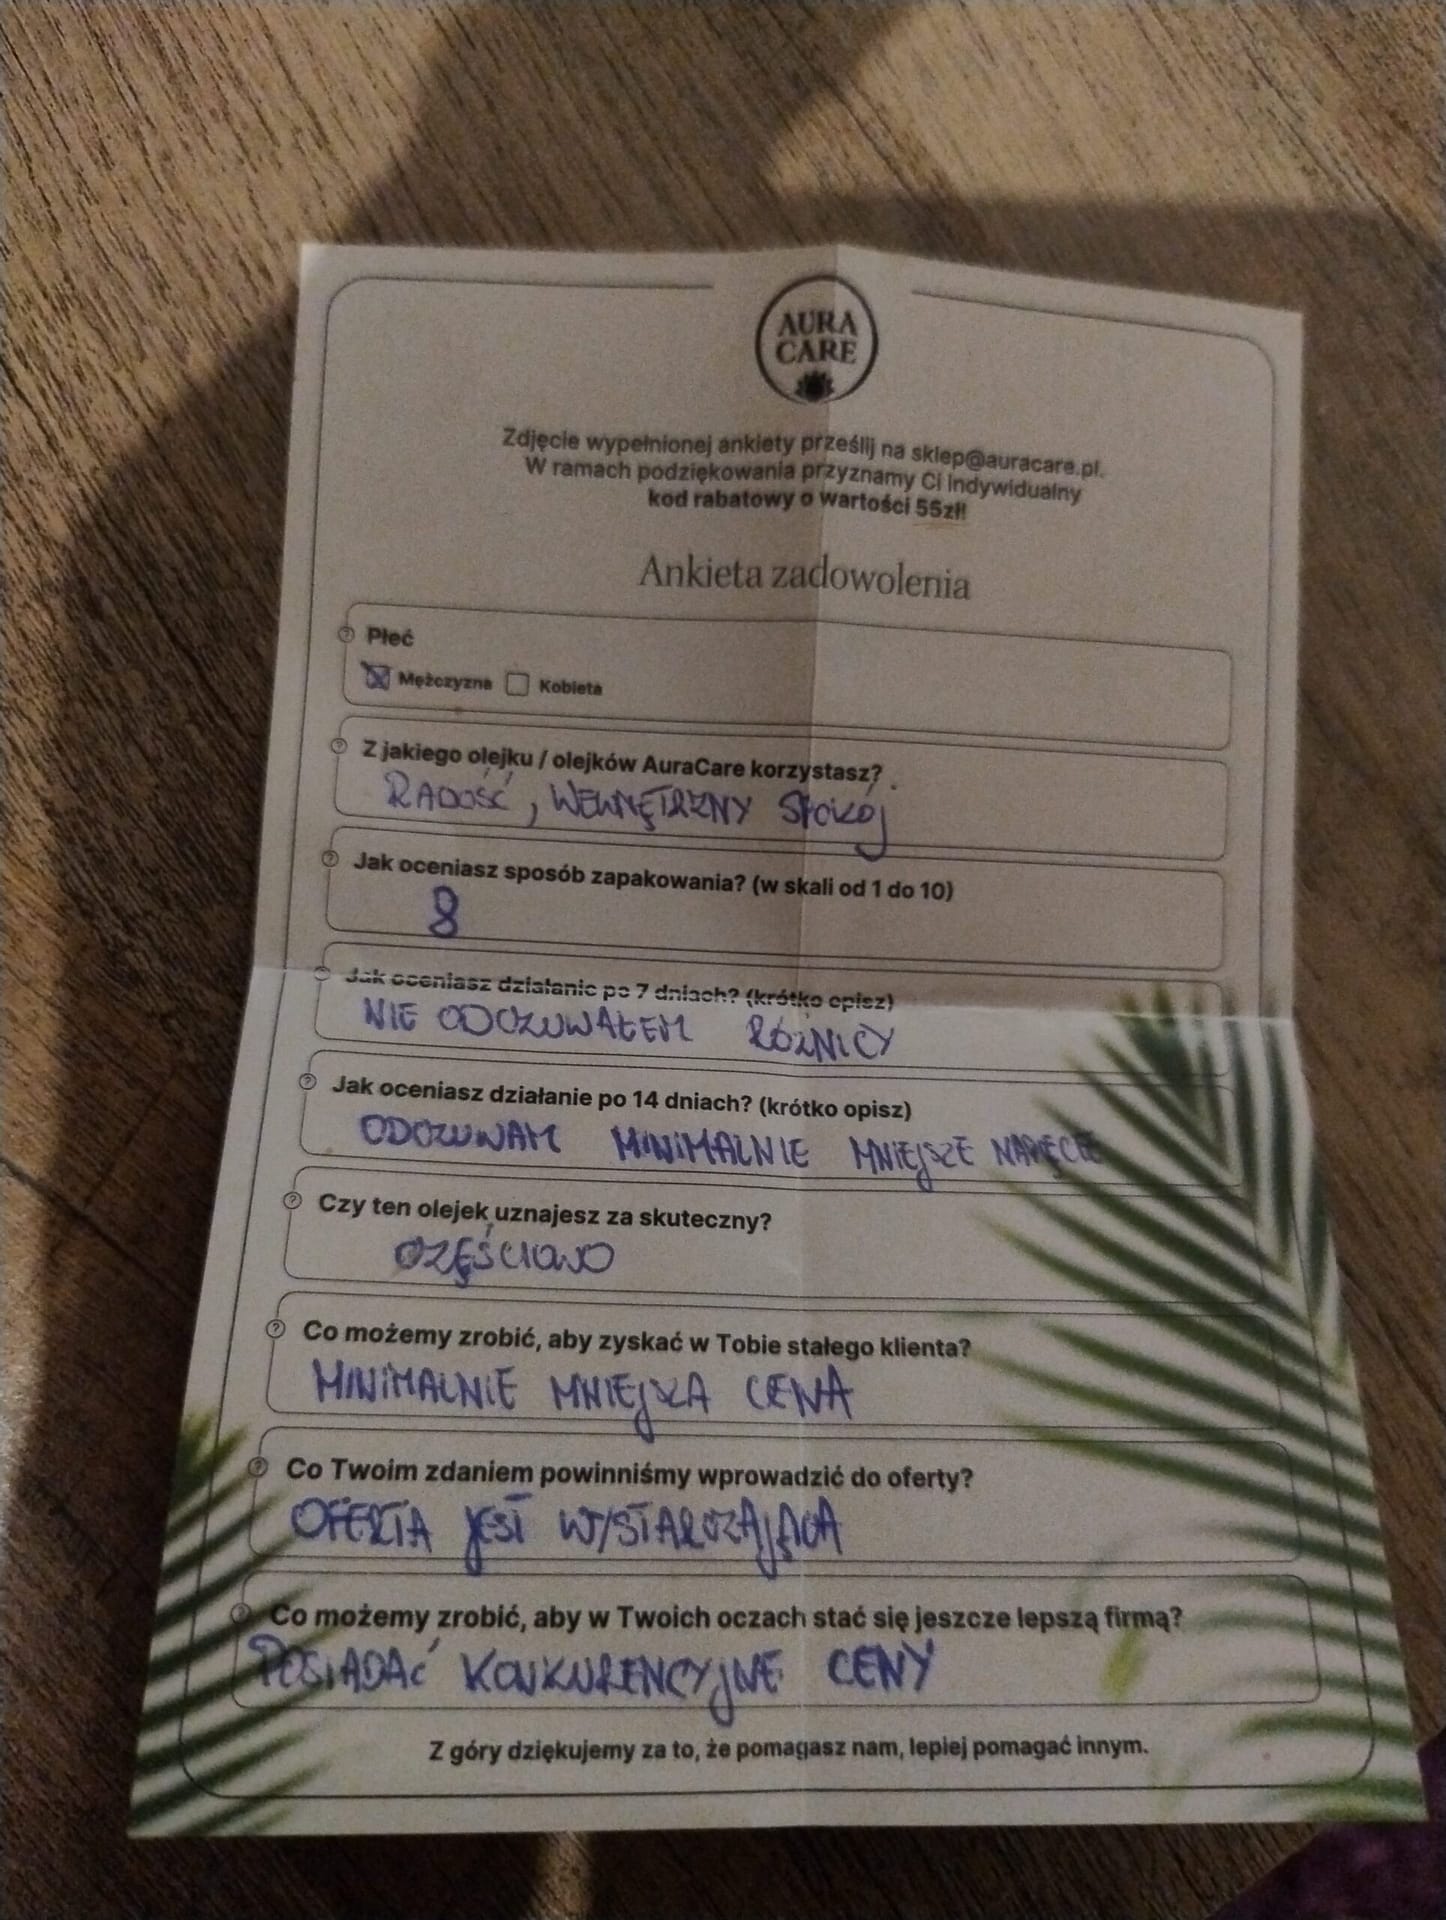 AURA
CARE
Zdjęcie wypełnionej ankiety prześlij na sklep@auracare.pl.
W ramach podziękowania przyznamy Ci indywidualny
kod rabatowy o wartości 55zł!
Ankieta zadowolenia
Płeć
Mężczyzna Kobieta
Z jakiego olejku / olejków AuraCare korzystasz?
RADOŚĆ, WEWNĘTRZNY SPOKÓJ
Jak oceniasz sposób zapakowania? (w skali od 1 do 10)
8
Jak oceniasz działanie po 7 dniach? (krótko opisz)
NIE ODCZUWAŁEM RÓŻNICY
Jak oceniasz działanie po 14 dniach? (krótko opisz)
ODCZUWAM MINIMALNIE MNIEJSZE NAPIĘCIE
Czy ten olejek uznajesz za skuteczny?
CZĘŚCIOWO
Co możemy zrobić, aby zyskać w Tobie stałego klienta?
MINIMALNIE MNIEJSZA CENA
Co Twoim zdaniem powinniśmy wprowadzić do oferty?
OFERTA JEST WYSTARCZAJĄCA
Co możemy zrobić, aby w Twoich oczach stać się jeszcze lepszą firmą?
POSIADAĆ KONKURENCYJNE CENY
Z góry dziękujemy za to, że pomagasz nam, lepiej pomagać innym.